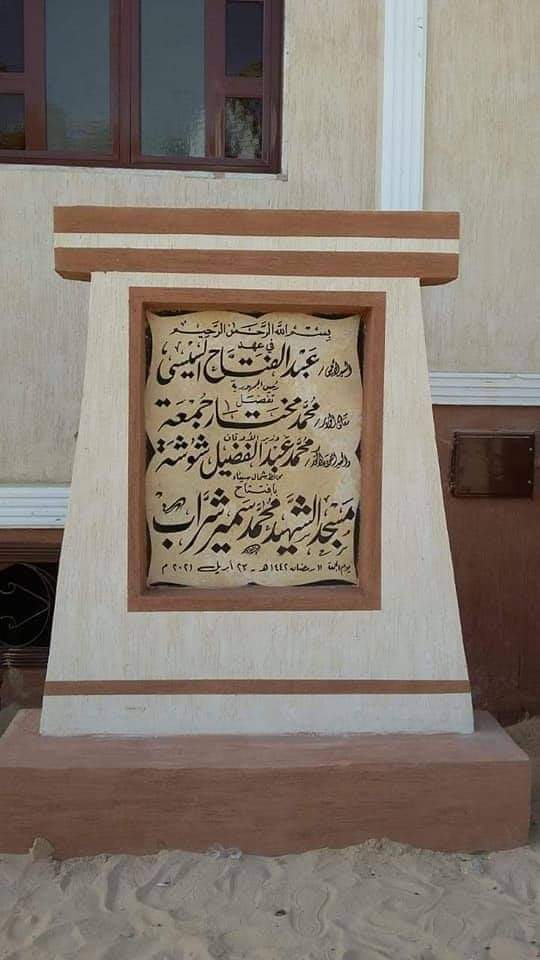 بسم الله الرحمن الرحيم
في عهد
السيد الرئيس / عبد الفتاح السيسي
رئيس الجمهورية
تفضل
معالي الأستاذ الدكتور / محمد مختار جمعة
وزير الأوقاف
والسيد اللواء الدكتور / محمد عبد الفضيل شوشة
محافظ شمال سيناء
بافتتاح
مسجد الشهيد محمد سمير شراب
يوم الجمعة ١١ رمضان ١٤٤٢ هـ - ٢٣ أبريل ٢٠٢١ م